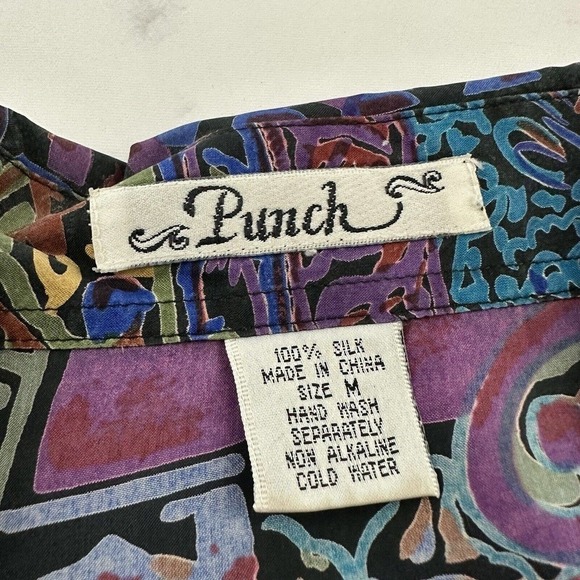 Punch
100% SILK
MADE IN CHINA
SIZE M
HAND WASH
SEPARATELY
NON ALKALINE
COLD WATER